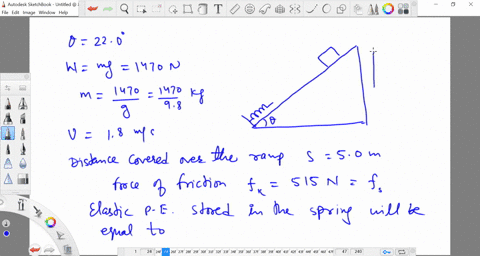 Autodesk SketchBook - Untitled @
θ = 22.0°
W = mg = 1470 N
m = 1470/g = 1470/9.8 kg
V = 1.8 m/s
θ
Distance covered over the ramp S = 5.0 m
force of friction fk = 515 N = fs
Elastic P.E. stored in the spring will be
equal to